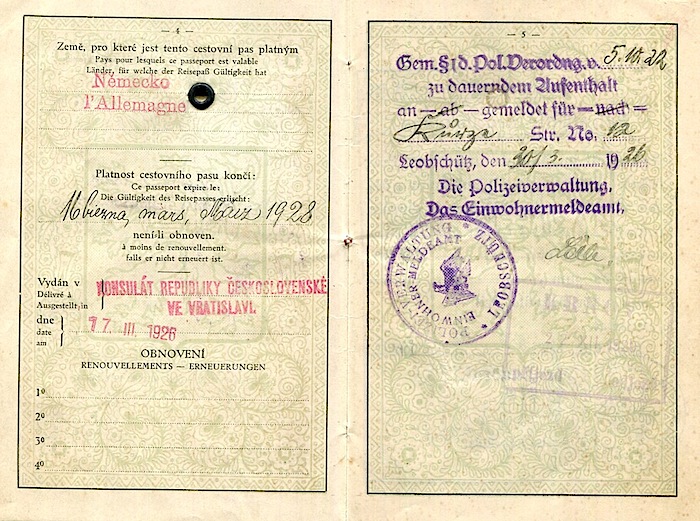 — 4 —
Země, pro které jest tento cestovní pas platným
Pays pour lesquels ce passeport est valable
Länder, für welche der Reisepaß Gültigkeit hat
Německo
l'Allemagne
Platnost cestovního pasu končí:
Ce passeport expire le:
Die Gültigkeit des Reisepasses erlischt:
března, mars, März 1928
není-li obnoven.
à moins de renouvellement.
falls er nicht erneuert ist.
Vydán v
Délivré à
Ausgestellt in
KONSULÁT REPUBLIKY ČESKOSLOVENSKÉ
VE VRATISLAVI.
dne
date
am
17 III 1926
OBNOVENÍ
RENOUVELLEMENTS — ERNEUERUNGEN
1⁰
2⁰
3⁰
4⁰
— 5 —
Gem. § 1 d. Pol. Verordng. v.
zu dauerndem Aufenthalt
an — ab — gemeldet für — nach —
Kurze Str. No. 12
Leobschütz, den 30/3. 1926
Die Polizeiverwaltung.
Das Einwohnermeldeamt.
POLIZEIVERWALTUNG * LEOBSCHÜTZ *
EINWOHNER MELDEAMT